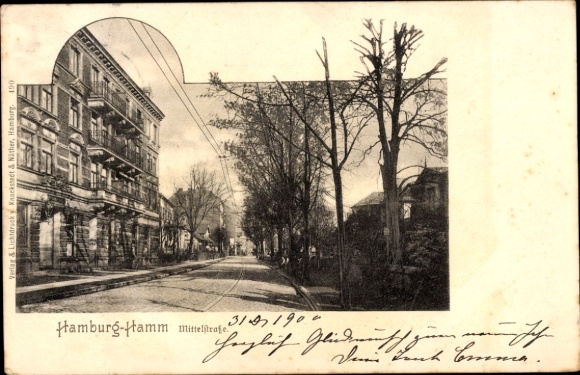 Hamburg-Hamm Mittelstraße.
31 D 1900
Herzlich Glückwunsch zum neuen Jahr
Deine Tante Emma.
Verlag & Lichtdruck v. Knackstedt & Näther, Hamburg. 490